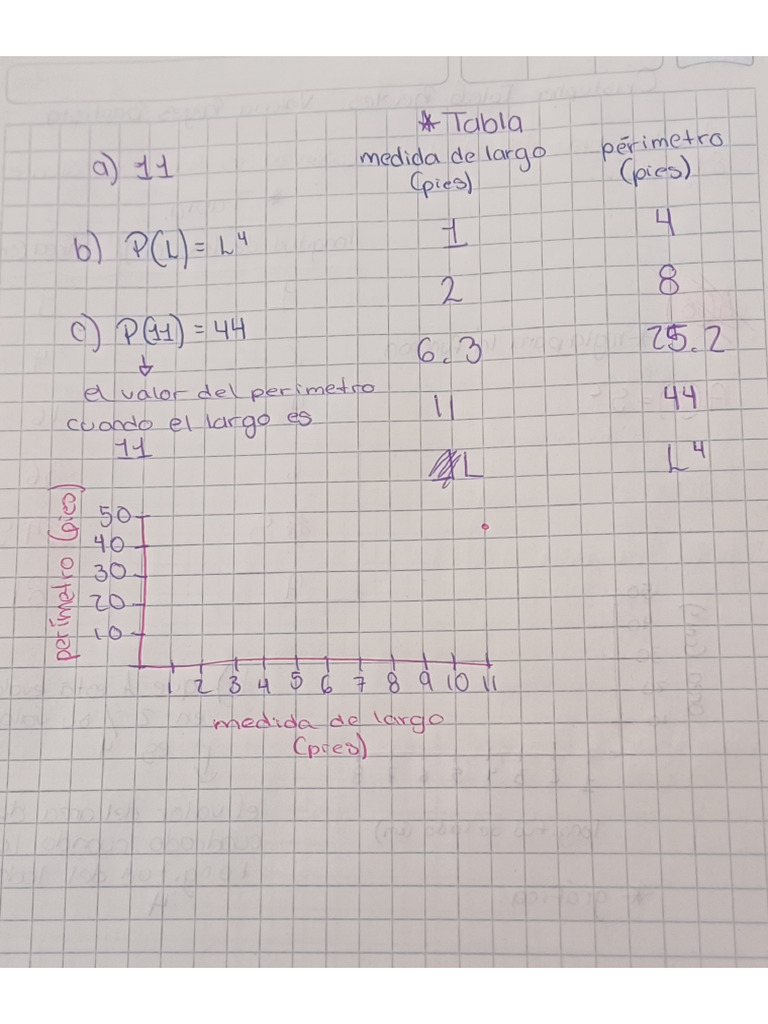 * Tabla
a) 11
medida de largo (pies)
périmetro (pies)
b) P(L) = L⁴
1 4
2 8
c) P(11) = 44
6.3 25.2
el valor del perimetro
cuando el largo es
11
11 44
L L⁴
perímetro (pies)
50
40
30
20
10
1 2 3 4 5 6 7 8 9 10 11
medida de largo
(pies)